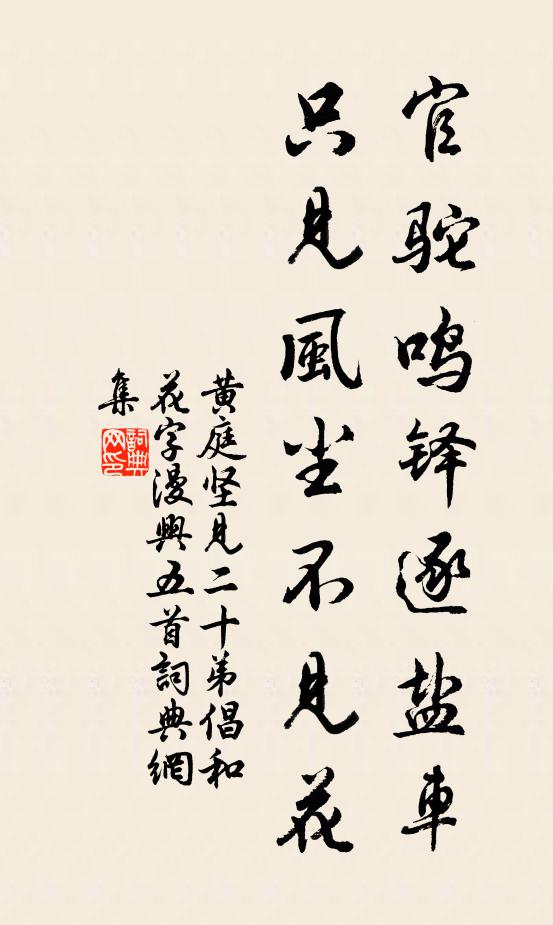 官驼鸣铎逐盐車
只見風尘不見花
黄庭坚見二十弟倡和
花字漫興五首詞典網
集
詞典
网印